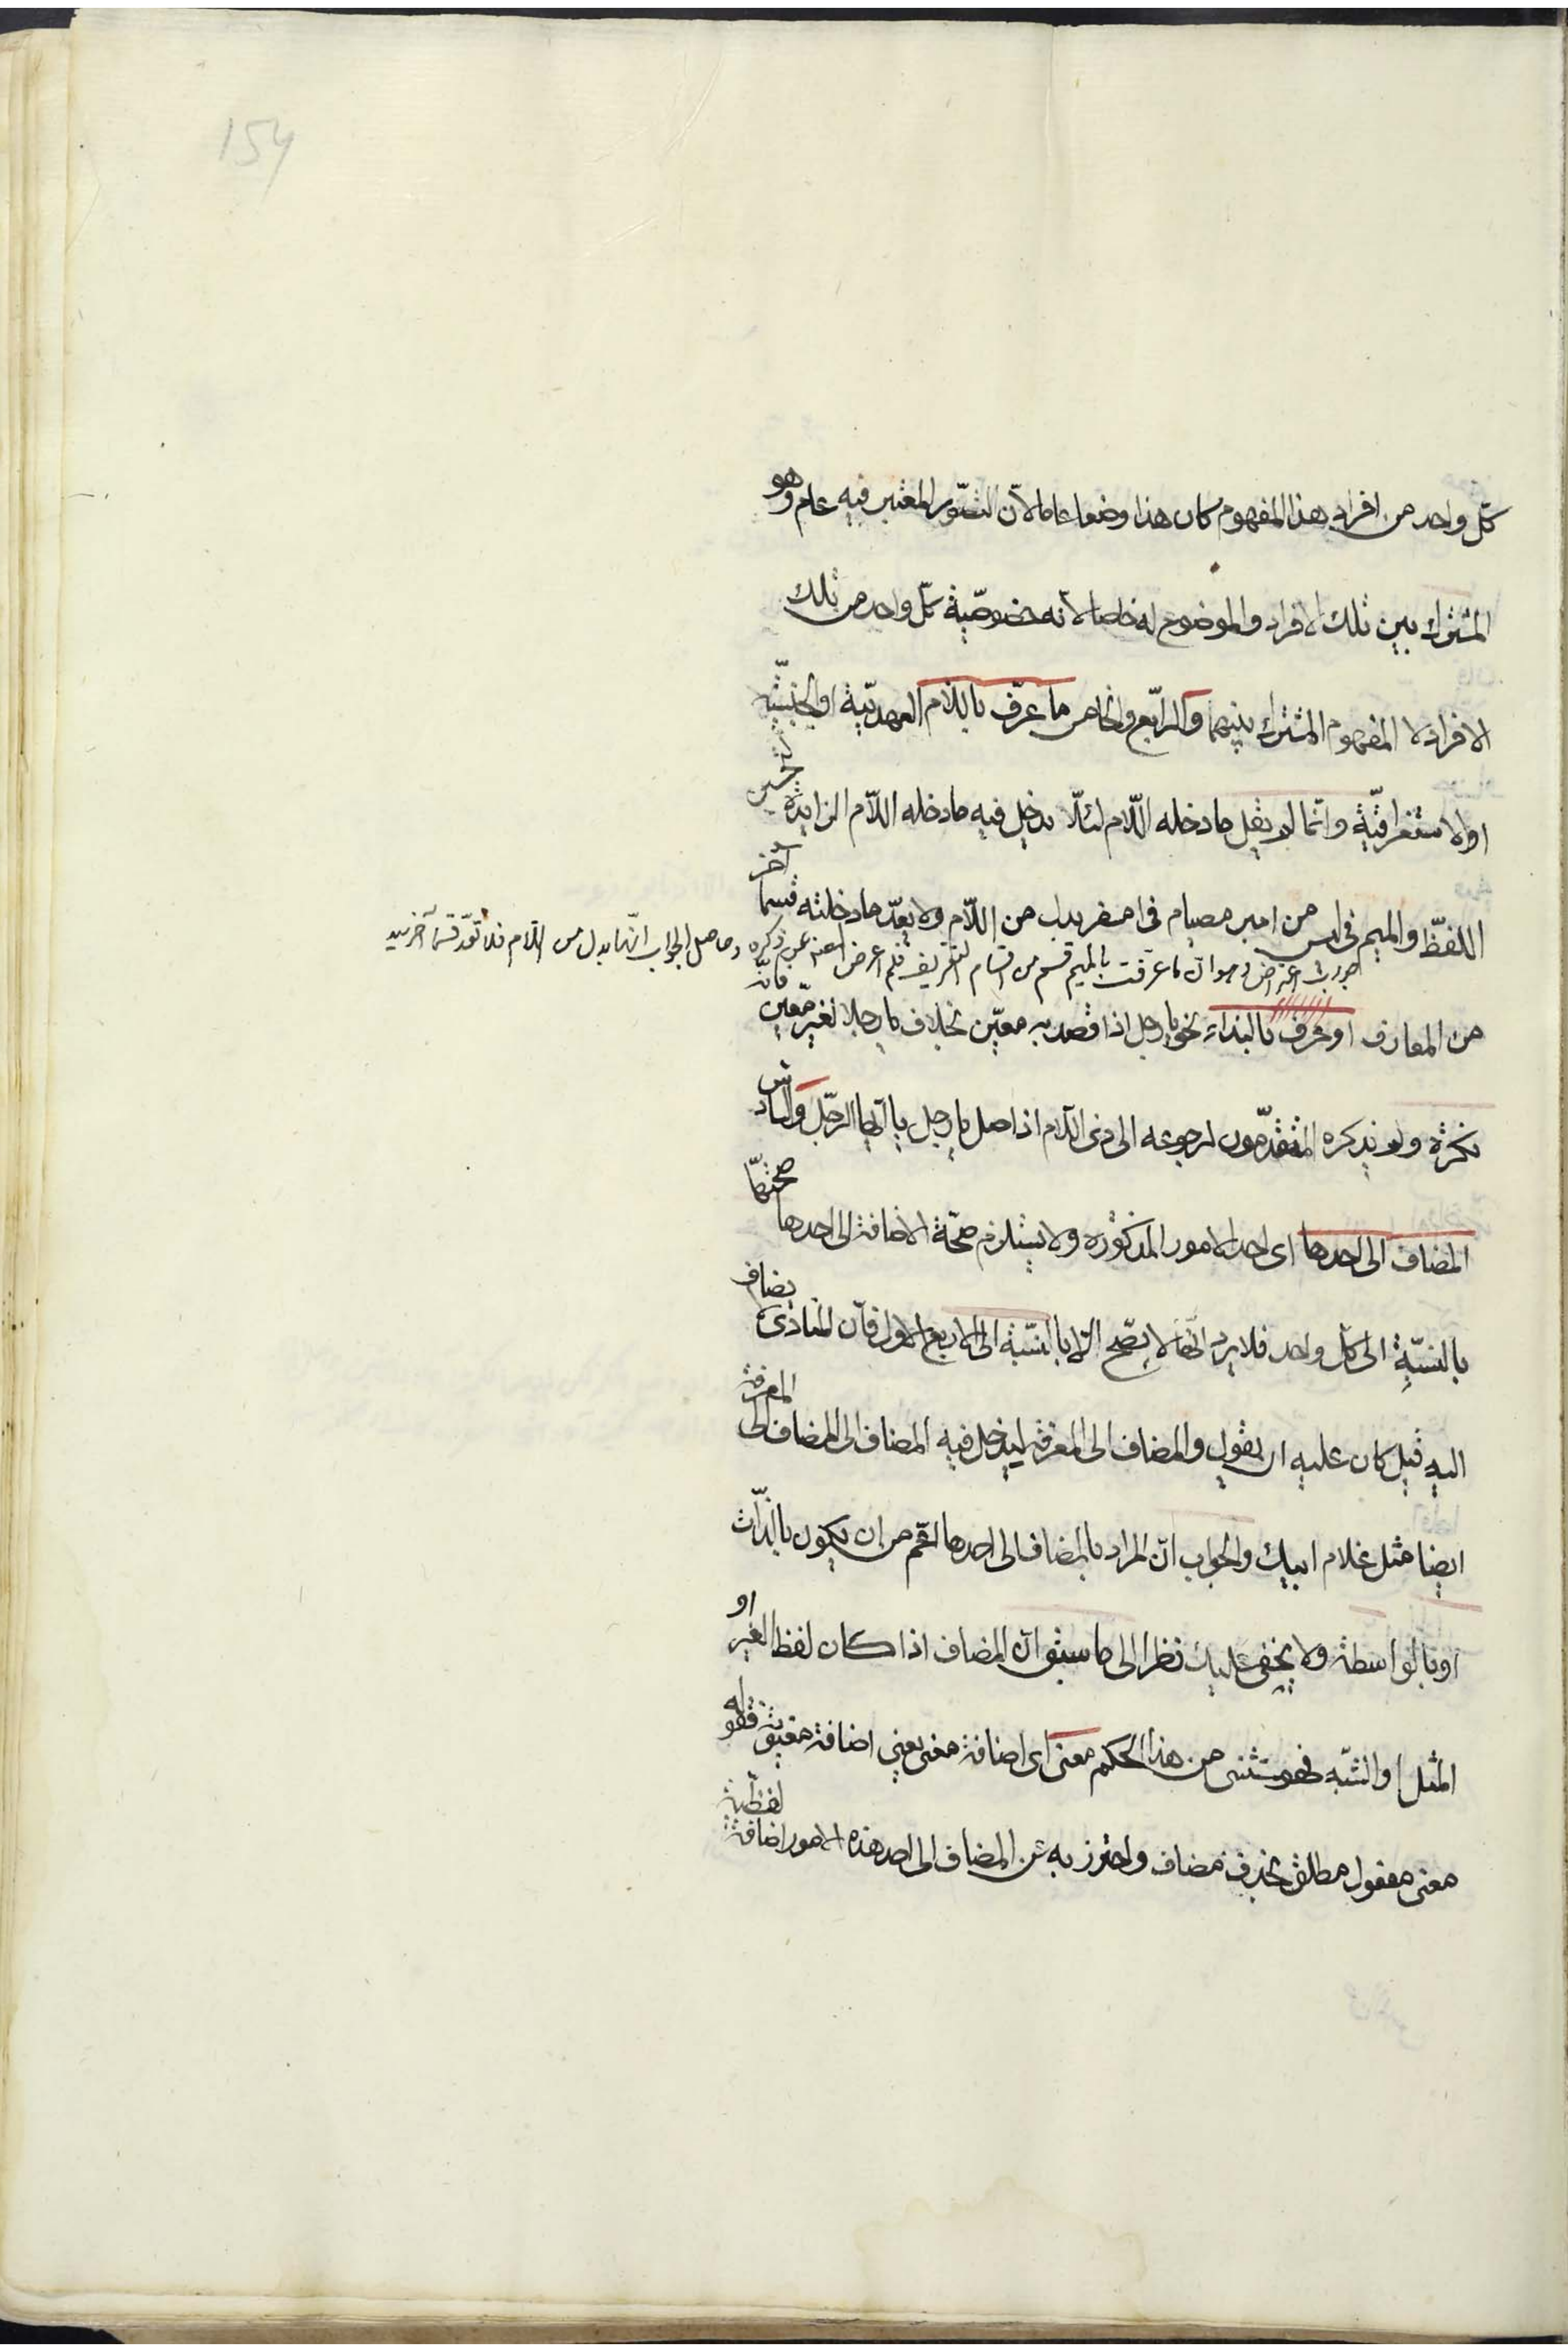 154
كل واحد من افراد هذا المفهوم كان هذا وضعا عاما لان التصور المعتبر فيه عام وهو
المشترك بين تلك الافراد والموضوع له خاصا لانه خصوصية كل واحد من تلك
الافراد لا المفهوم المشترك بينهما والرابع والخامس ما عرف باللام العهدية او الجنسية
او الاستغراقية وانما لم يقل ما دخله اللام لئلا يدخل فيه ما دخله اللام الزايدة لتحسين
اللفظ والميم في ليس من امبر مصيام في امسفر بدل من اللام ولا يعد ما دخلته قسما آخر
جواب اعتراض وهو ان ما عرفت بالميم قسم من اقسام التعريف فلم اعرض المصنف عن ذكره وحاصل الجواب انها بدل من اللام فلا تعد قسما آخر سيد
من المعارف او عرف بالنداء نحو يا رجل اذا قصد به معين بخلاف يا رجلا لغير معين فانه
نكرة ولم يذكره المتقدمون لرجوعه الى ذى اللام اذ اصل يا رجل يا ايها الرجل والسادس
المضاف الى احدها اى احد الامور المذكورة ولا يستلزم صحة الاضافة الى احدها صحتها
بالنسبة الى كل واحد فلا يرد انها لا يصح الا بالنسبة الى الاربع الاول فان المنادى لا يضاف
اليه قيل كان عليه ان يقول والمضاف الى المعرفة ليدخل فيه المضاف الى المضاف الى المعرفة
ايضا مثل غلام ابيك والجواب ان المراد بالمضاف الى احدها اعم من ان يكون بالذات
او بالواسطة ولا يخفى عليك نظرا الى ما سبق ان المضاف اذا كان لفظ الغير او
المثل او الشبه فهو مستثنى من هذا الحكم معنى اى اضافة معنى يعنى اضافة معنوية فقوله
معنى مفعول مطلق بحذف مضاف واحترز به عن المضاف الى احد هذه الامور اضافة لفظية